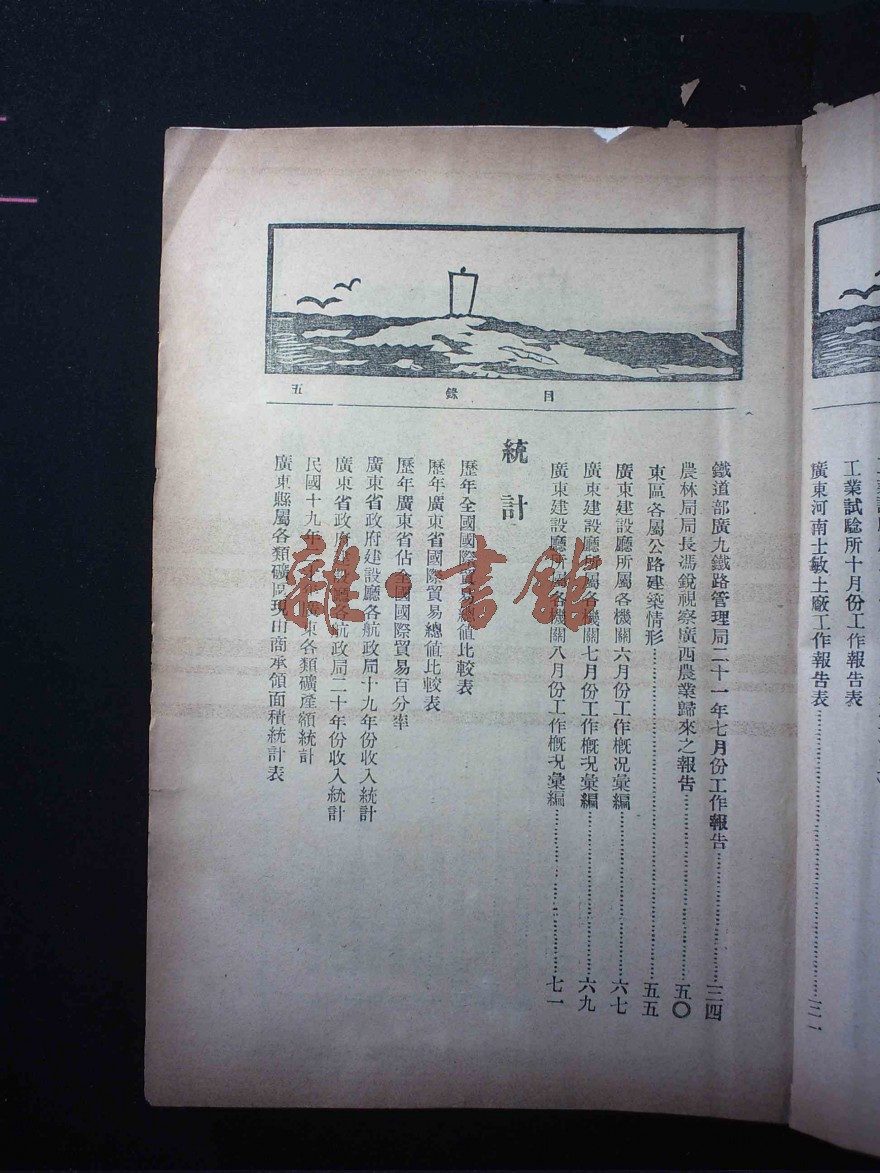 工業試驗所十月份工作報告表
廣東河南士敏土廠工作報告表……三一
目 錄 五
鐵道部廣九鐵路管理局二十一年七月份工作報告……三四
農林局局長馮銳視察廣西農業歸來之報告……五〇
東區各屬公路建築情形……五五
廣東建設廳所屬各機關六月份工作概况彙編……六七
廣東建設廳所屬各機關七月份工作概况彙編……六九
廣東建設廳所屬各機關八月份工作概况彙編……七一
統計
歷年全國國際貿易總值比較表
歷年廣東省國際貿易總值比較表
歷年廣東省佔全國國際貿易百分率
廣東省政府建設廳各航政局十九年份收入統計
廣東省政府建設廳各航政局二十年份收入統計
民國十九年廣東各類礦產額統計
廣東縣屬各類礦區現由商承領面積統計表
雜·書館